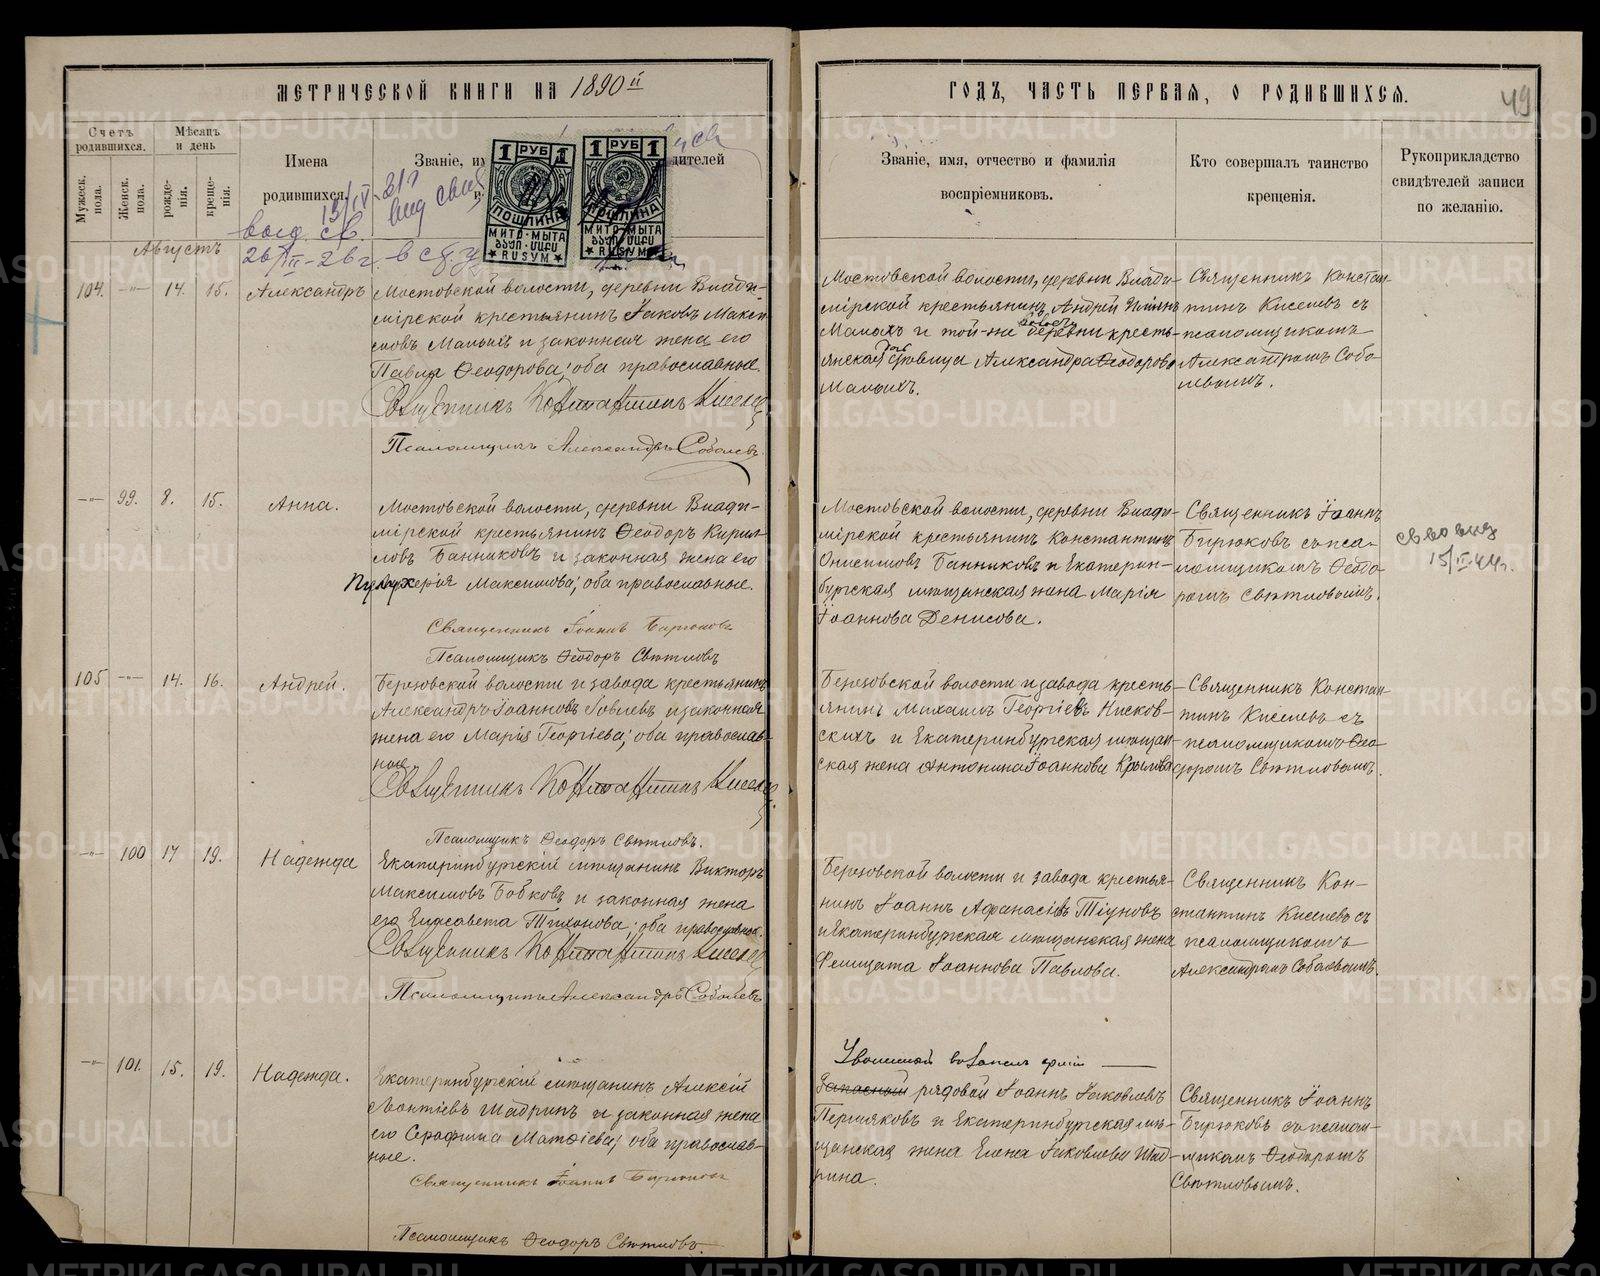 МЕТРИЧЕСКОЙ КНИГИ НА 1890й
ГОДЪ, ЧАСТЬ ПЕРВАЯ, О РОДИВШИХСЯ.
49
Счетъ родившихся.
Мѣсяцъ и день
Мужеск. пола.
Женск. пола.
рожденія.
крещенія.
Имена
родившихся.
Званіе,
дителей
Званіе, имя, отчество и фамилія
воспріемниковъ.
Кто совершалъ таинство
крещенія.
Рукоприкладство
свидѣтелей записи
по желанію.
1 РУБ 1
ПОШЛИНА
МИТО·МЫТА
RUSYM
1 РУБ 1
ПОШЛИНА
МИТО·МЫТА
RUSYM
выд. св.
Августъ
104. —"— 14. 15. Александръ
Мостовской волости, деревни Влади-
мірской крестьянинъ Іаковъ Макси-
мовъ Малыхъ и законная жена его
Павла Ѳеодорова; оба православные.
Священникъ Константинъ Киселевъ
Псаломщикъ Александръ Соболевъ.
Мостовской волости, деревни Влади-
мірской крестьянинъ Андрей
Малыхъ и той-же деревни кресть-
янская девица Александра Ѳеодорова
Малыхъ.
Священникъ Констан-
тинъ Киселевъ съ
псаломщикомъ
Александромъ Собо-
левымъ.
—"— 99. 8. 15. Анна.
Мостовской волости, деревни Влади-
мірской крестьянинъ Ѳеодоръ Кирил-
ловъ Банниковъ и законная жена его
Пульхерія Максимова; оба православные.
Священникъ Іоаннъ Бирюковъ
Псаломщикъ Ѳеодоръ Свѣтловъ
Мостовской волости, деревни Влади-
мірской крестьянинъ Константинъ
Онисимовъ Банниковъ и Екатерин-
бургская мѣщанская жена Марія
Іоаннова Денисова.
Священникъ Іоаннъ
Бирюковъ съ пса-
ломщикомъ Ѳеодо-
ромъ Свѣтловымъ.
15/II 44г.
105 —"— 14. 16. Андрей.
Березовской волости и завода крестьянинъ
Александръ Іоанновъ и законная
жена его Марія Георгіева; оба православ-
ные.
Священникъ Константинъ Киселевъ
Псаломщикъ Ѳеодоръ Свѣтловъ.
Березовской волости и завода кресть-
янинъ Михаилъ Георгіевъ Писков-
скихъ и Екатеринбургская мѣщан-
ская жена Антонина Іоаннова Крылова
Священникъ Констан-
тинъ Киселевъ съ
псаломщикомъ Ѳео-
доромъ Свѣтловымъ.
—"— 100 17 19. Надежда
Екатеринбургскій мѣщанинъ Викторъ
Максимовъ Бобковъ и законная жена
его Елисавета Тихонова; оба православные.
Священникъ Константинъ Киселевъ
Псаломщикъ Александръ Соболевъ
Березовской волости и завода крестья-
нинъ Іоаннъ Афанасіевъ Тіуновъ
и Екатеринбургская мѣщанская жена
Фелицата Іоаннова Павлова.
Священникъ Кон-
стантинъ Киселевъ съ
псаломщикомъ
Александромъ Соболевымъ.
—"— 101. 15. 19. Надежда.
Екатеринбургскій мѣщанинъ Алексій
Леонтіевъ Шадринъ и законная жена
его Серафима Матѳіева; оба православ-
ные.
Священникъ Іоаннъ Бирюковъ
Псаломщикъ Ѳеодоръ Свѣтловъ.
Уволенной въ запасъ арміи
Запасный рядовой Іоаннъ Іаковлевъ
Пермяковъ и Екатеринбургская мѣ-
щанская жена Елена Іаковлева Шад-
рина.
Священникъ Іоаннъ
Бирюковъ съ псалом-
щикомъ Ѳеодоромъ
Свѣтловымъ.
METRIKI.GASO-URAL.RU